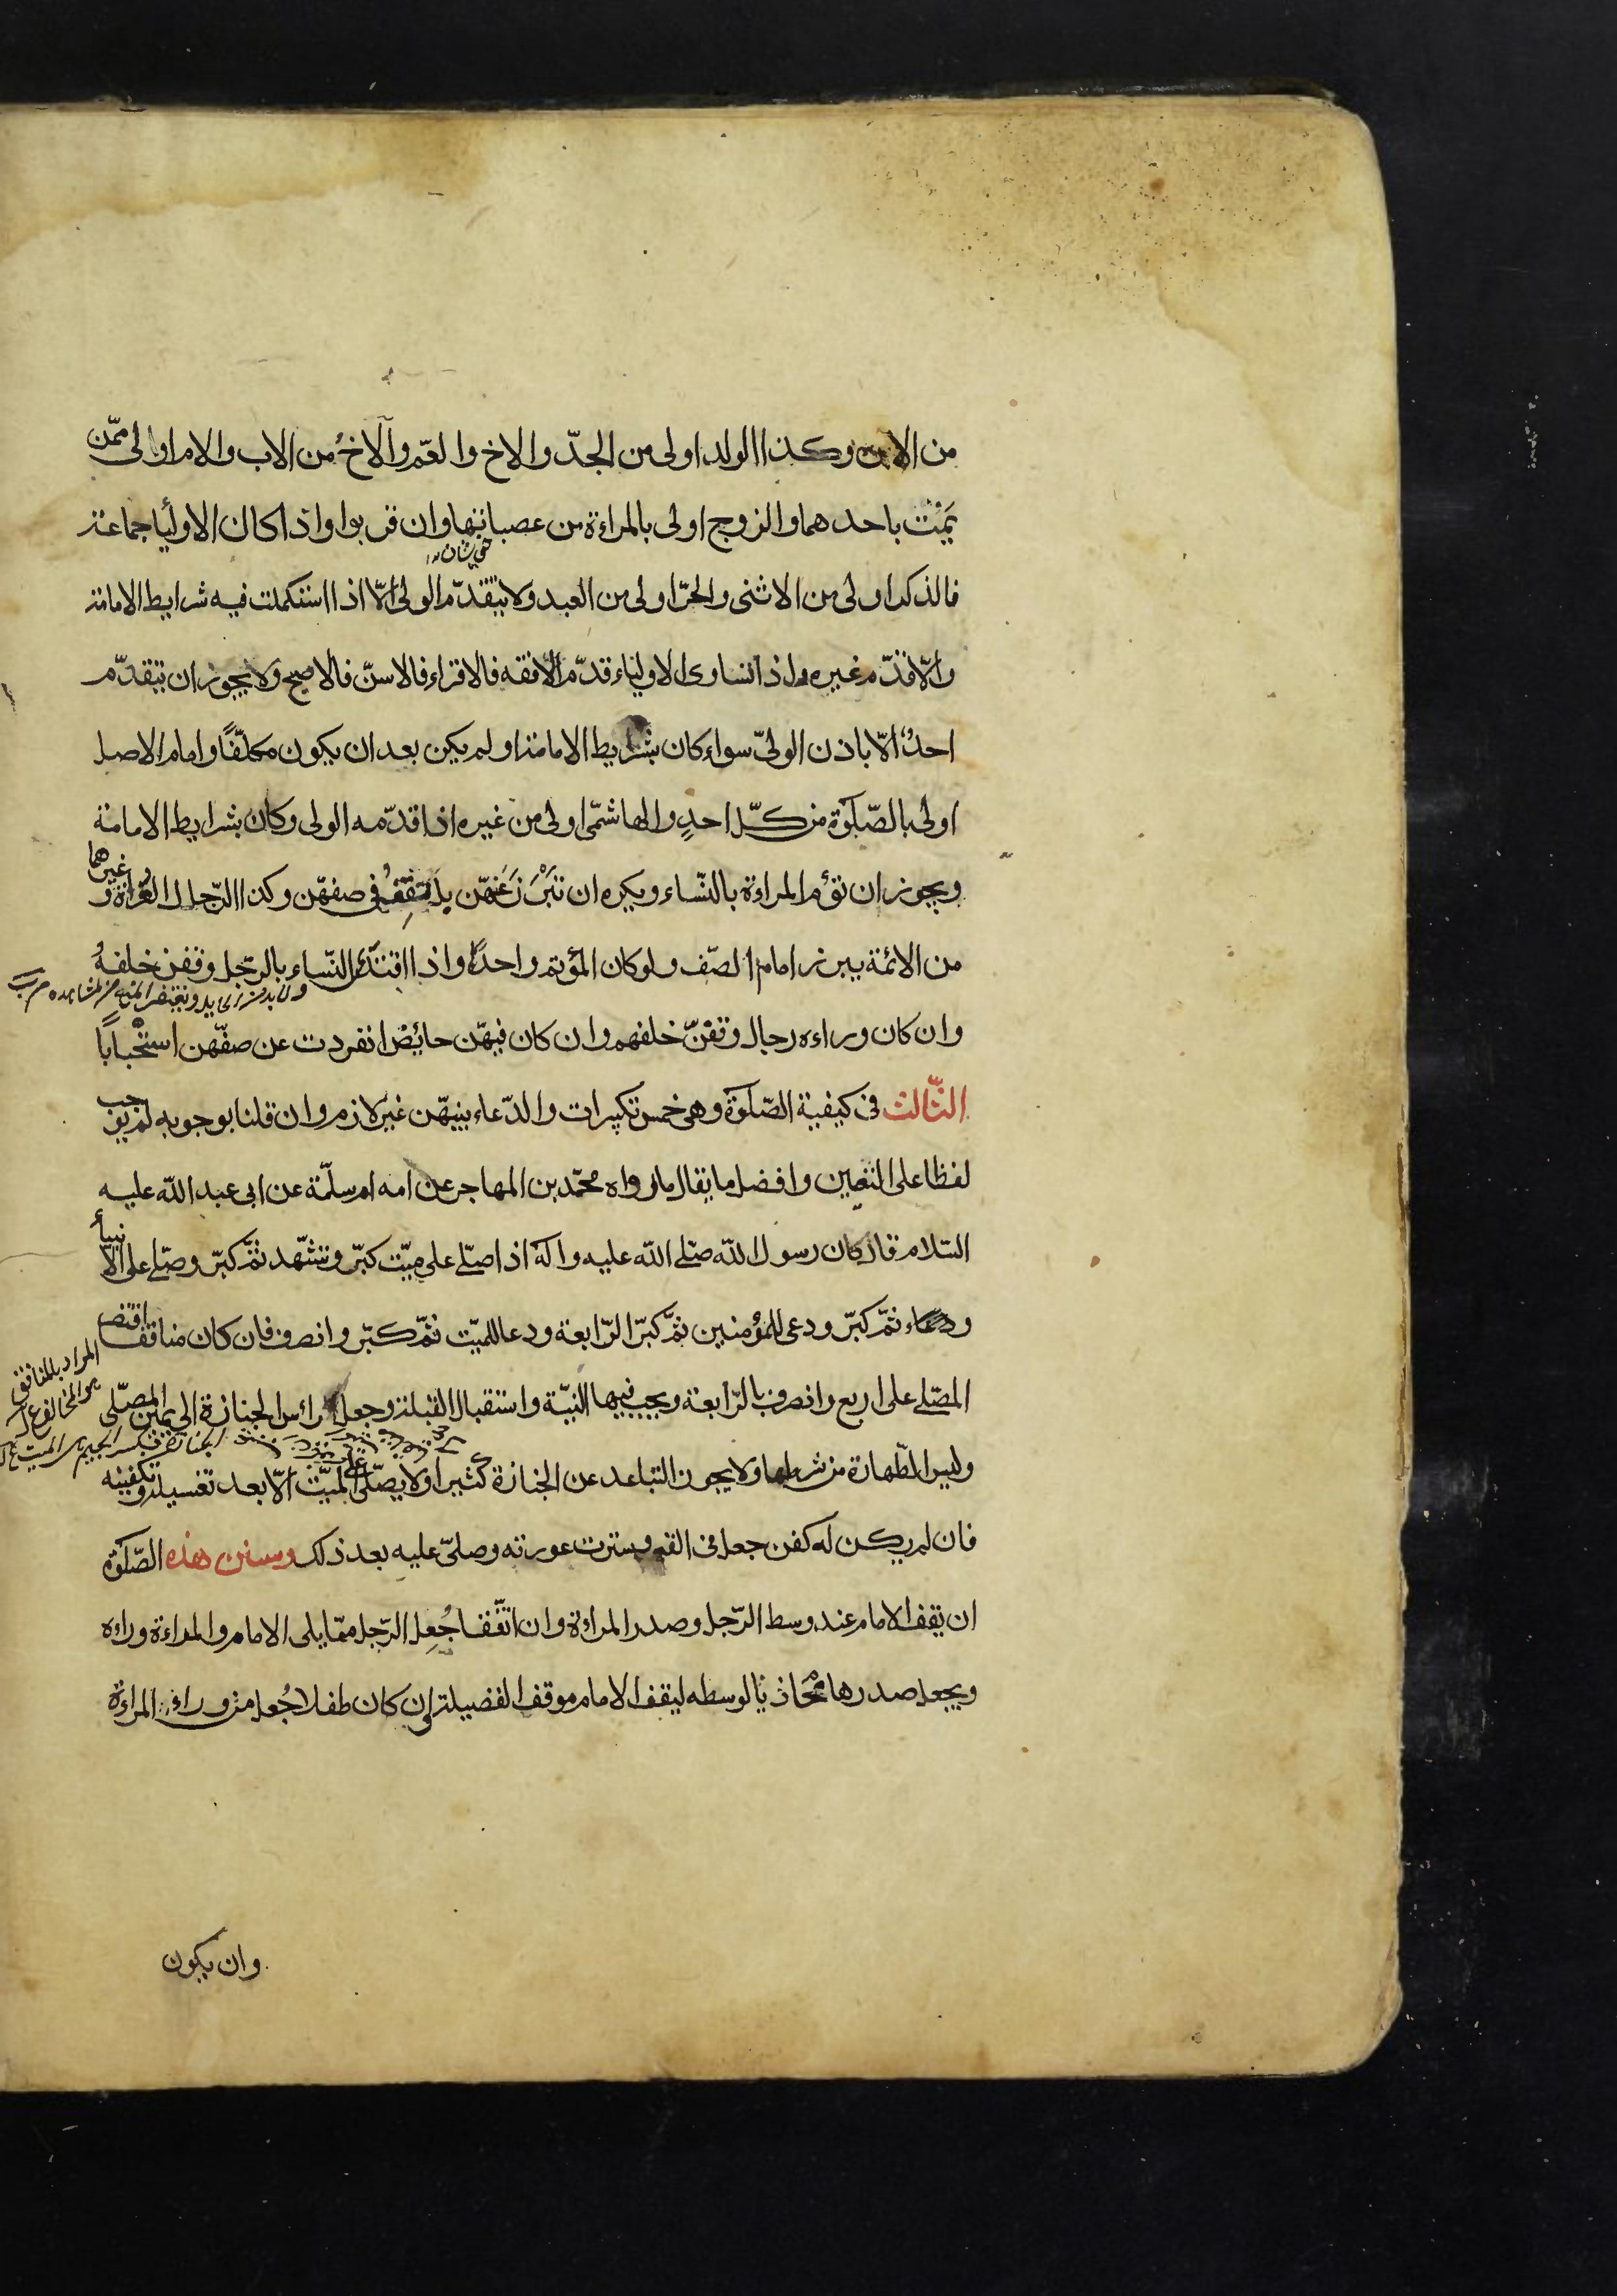 من الابن وكذا الولد اولى من الجدّ والاخ والعّم والاخُ من الاب والام اولى ممّن
يَمُتّ باحدهما والزوج اولى بالمراءة من عصباتها وان قربوا واذا كان الاوليا جماعة
فالذكر اولى من الانثى والحرّ اولى من العبد ولا يتقدّم الولى الّا اذا استكملت فيه شرايط الامامة
والّا قدّم غيره واذا تساوى الاولياء قدّم الافقه فالاقراء فالاسنّ فالاصبح ولا يجوز ان يتقدّم
احدٌ الّا باذن الولىّ سواء كان بشرايط الامامة او لم يكن بعد ان يكون مكلّفًا وامام الاصل
اولى بالصّلوة من كلّ احدٍ والهاشمّى اولى من غيره اذا قدّمه الولى وكان بشرايط الامامة
ويجوز ان تؤم المراءة بالنّساء ويكره ان تبرُزَ عَنهّن بل تقِفُ فى صفهّن وكذا الرّجال العراة وغيرهما
من الائمة يبرز امام الصّف ولو كان المؤتم واحدًا واذا اقتدى النّساء بالرّجل وقفن خلفهُ
وان كان وراءه رجال وقفنّ خلفهم وان كان فيهّن حائضْ انفردت عن صفّهن استْحبابًا
الثّالث فى كيفية الصّلوة وهى خمس تكبيرات والدّعاء بينهّن غيْر لازم وان قلنا بوجوبه لم يوجب
لفظا على التعيين وافضل ما يقال ما رواه محمّد بن المهاجر عن امه ام سلمّة عن ابى عبد الله عليه
السّلام قال كان رسول الله صلّى الله عليه وآله اذا صلّى على ميّت كبّر وتشّهد ثمّ كبّر وصلّى على الانبيأ
ودعاء ثمّ كبّر ودعى للمؤمنين ثمّ كبّر الرّابعة ودعا للميّت ثمّ كبّر وانصرف فان كان منافقا اقتصر
المصلّى على اربع وانصرف بالرّابعة ويجب فيها النيّة واستقبال القبلة وجعل رائس الجنازة الى يمين المصلّى
المراد بالمنافق
هو المخالف
وليس الطّهارة من شرطها ولا يجوز التباعد عن الجنازة كثيرا ولا يصلّى على الميّت الّا بعد تغسيله وتكفينه
فان لم يكن له كفن جعل فى القبر وسترت عورته وصلىّ عليه بعد ذلك وسنن هذه الصّلوة
ان يقف الامام عند وسط الرّجل وصدر المراءة وان اتّفقا جُعِل الرّجل ممّا يلى الامام والمراءة وراءه
ويجعل صدرها مُحاذيًا لوسطه ليقف الامام موقف الفضيلة وان كان طفلا جُعل من وراء المراءة
وان يكون